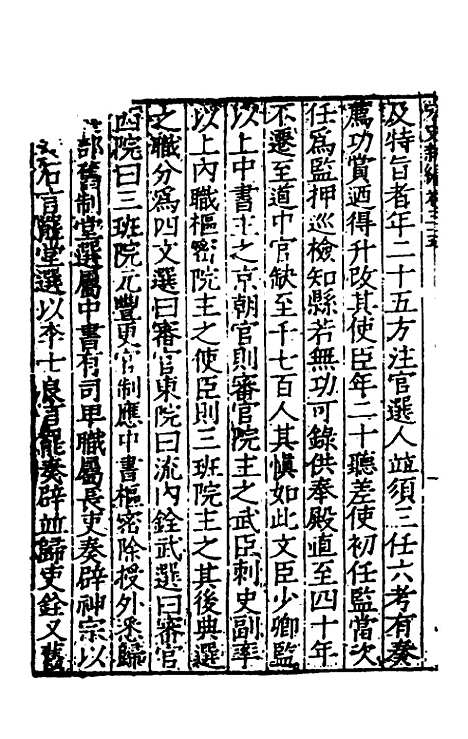 宋史新編卷三十五
及特旨者年二十五方注官選人並須三任六考有奏
薦功賞廼得升改其使臣年二十聽差使初任監當次
任為監押巡檢知縣若無功可錄供奉殿直至四十年
不遷至道中官缺至千七百人其慎如此文臣少卿監
以上中書主之京朝官則審官院主之武臣刺史副率
以上內職樞密院主之使臣則三班院主之其後典選
之職分為四文選曰審官東院曰流內銓武選曰審官
西院曰三班院元豐更官制應中書樞密除授外悉歸
部舊制堂選屬中書有司甲職屬長吏奏辟神宗以
右官罷堂選以本士 罷奏辟並歸吏銓又舊